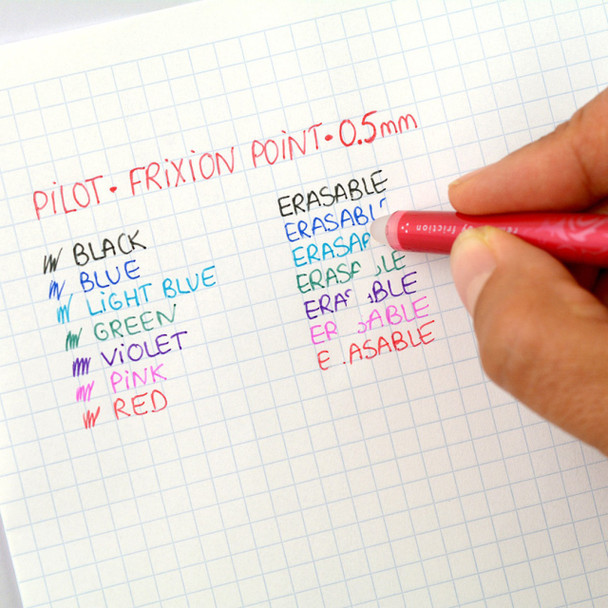 PILOT · FRIXION POINT · 0.5mm
BLACK
BLUE
LIGHT BLUE
GREEN
VIOLET
PINK
RED
ERASABLE
ERASABL
ERASA
ERASA LE
ERA BLE
ER SABLE
E ASABLE
friction